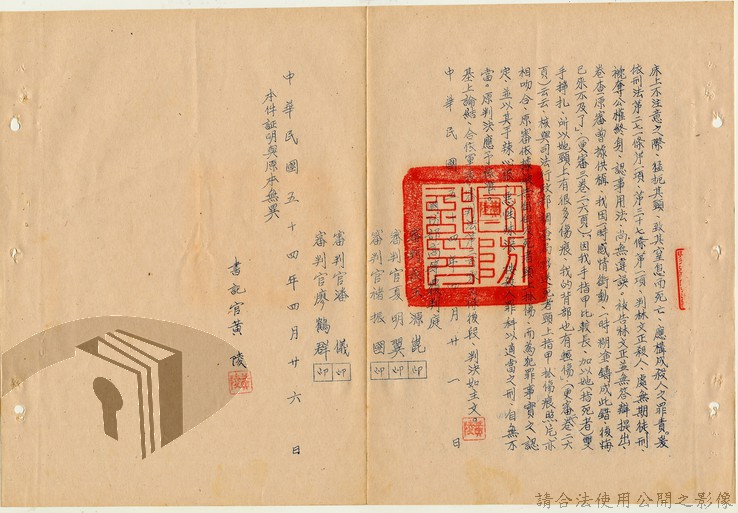 床上不注意之際、猛扼其頸、致其窒息而死亡、應構成殺人之罪責。爰
依刑法第二七一條第一項、第三十七條第一項、判林文正殺人、處無期徒刑、
褫奪公權終身、認事用法、尚無違誤。被告林文正並無答辯提出、
卷查原審曾據供稱、我因一時感情衝動、一時糊塗鑄成此錯、後悔
已來不及了」(更審三卷二六頁)「因我手指甲比較長、加以她(指死者)雙
手掙扎、所以她頸上有很多傷痕、我的背部也有抓傷(更審卷二六
頁)云云、核與司法行政部調查局 死者頸上指甲抓傷痕照片、亦
相吻合、原審依據 而為犯罪事實之認
定、並以其手 罪科以適當之刑、自無不
當。原判決應予核准。
基上論結、合依軍事 後段、判決如主文。
中華民國五十四年 月廿一日
國防部高等 庭
審判 源
審判官夏明翼 印
審判官褚振國 印
審判官廖鶴群 印
審判官潘 儀 印
本件証明與原本無異
書記官黃 陵
中華民國五十四年四月廿六日
請合法使用公開之影像